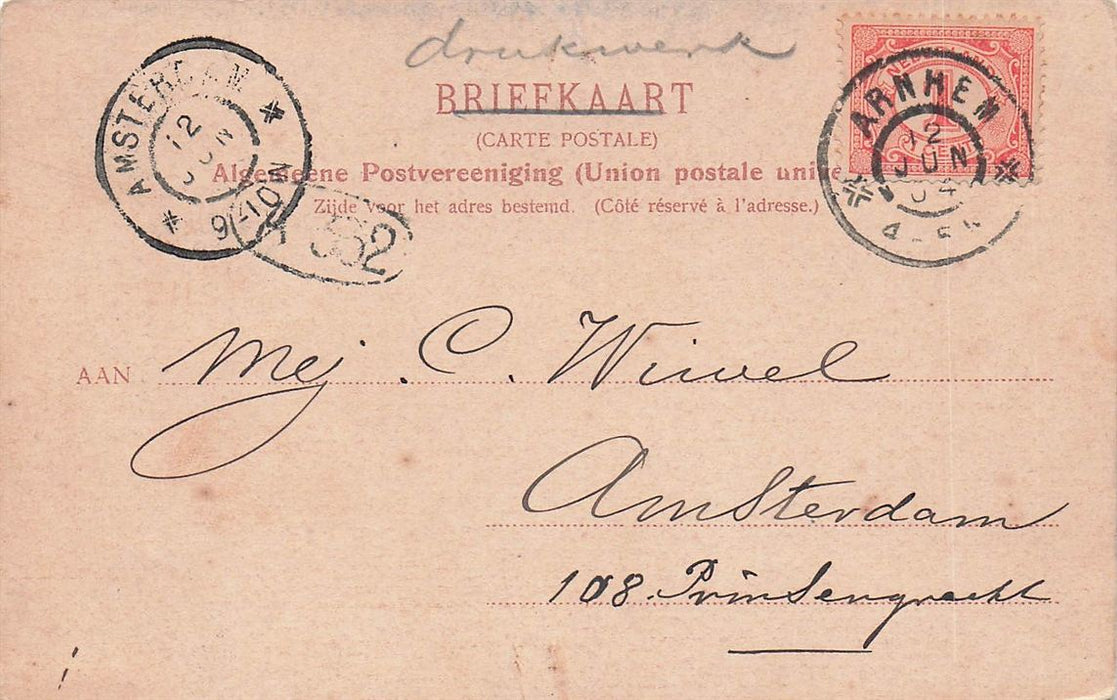 drukwerk
BRIEFKAART
(CARTE POSTALE)
Algemeene Postvereeniging (Union postale unive
Zijde voor het adres bestemd. (Côté réservé à l'adresse.)
AMSTERDAM
12
9-10N
552
ARNHEM
12
JUN
04
4-5N
AAN Mej. C. Wiwel
Amsterdam
108 Prinsengracht